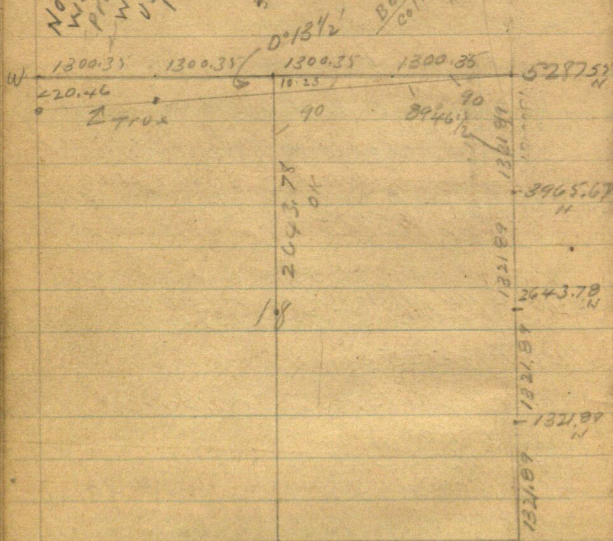 0°13½'
1300.35 1300.35 1300.35 1300.35
W
5287.55
N
20.46
10.23
True
90
90
8946½
1321.89
3965.67
N
2643.78
OK
1321.89
2643.78
N
18
1321.89
1321.89
N
1321.89